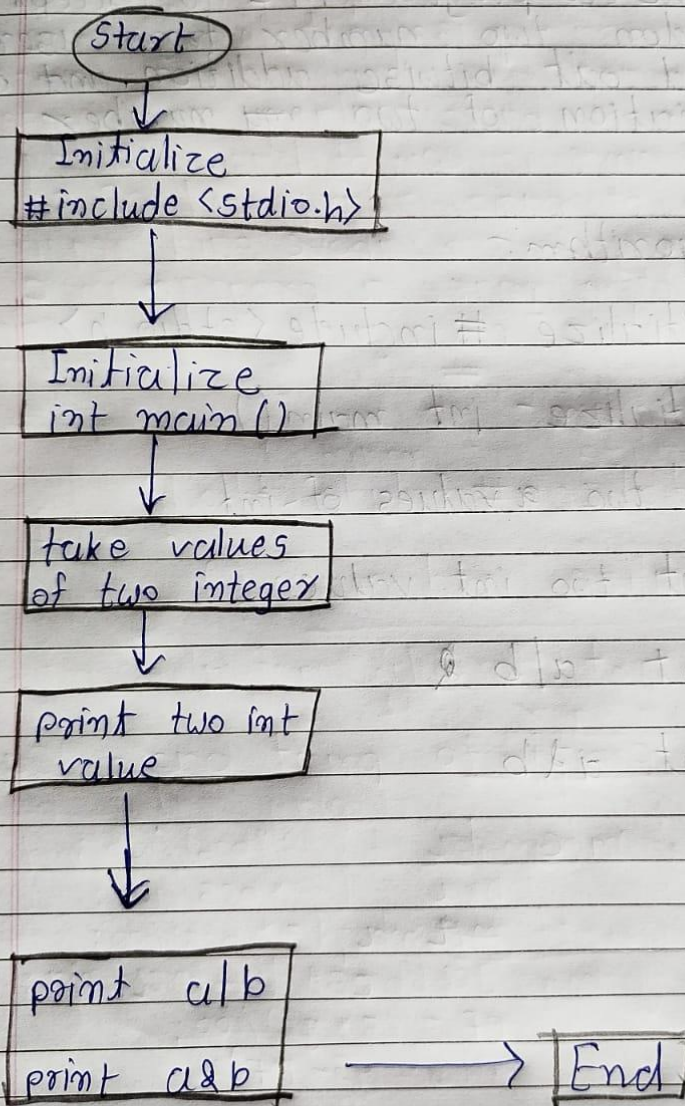 Start
Initialize
#include <stdio.h>
Initialize
int main()
take values
of two integer
print two int
value
print a|b
print a&b
End